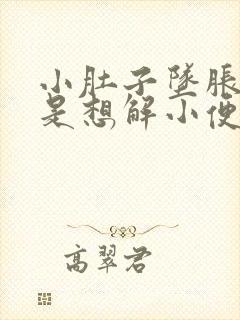 小肚子墜脹
是想解小便
高翠君